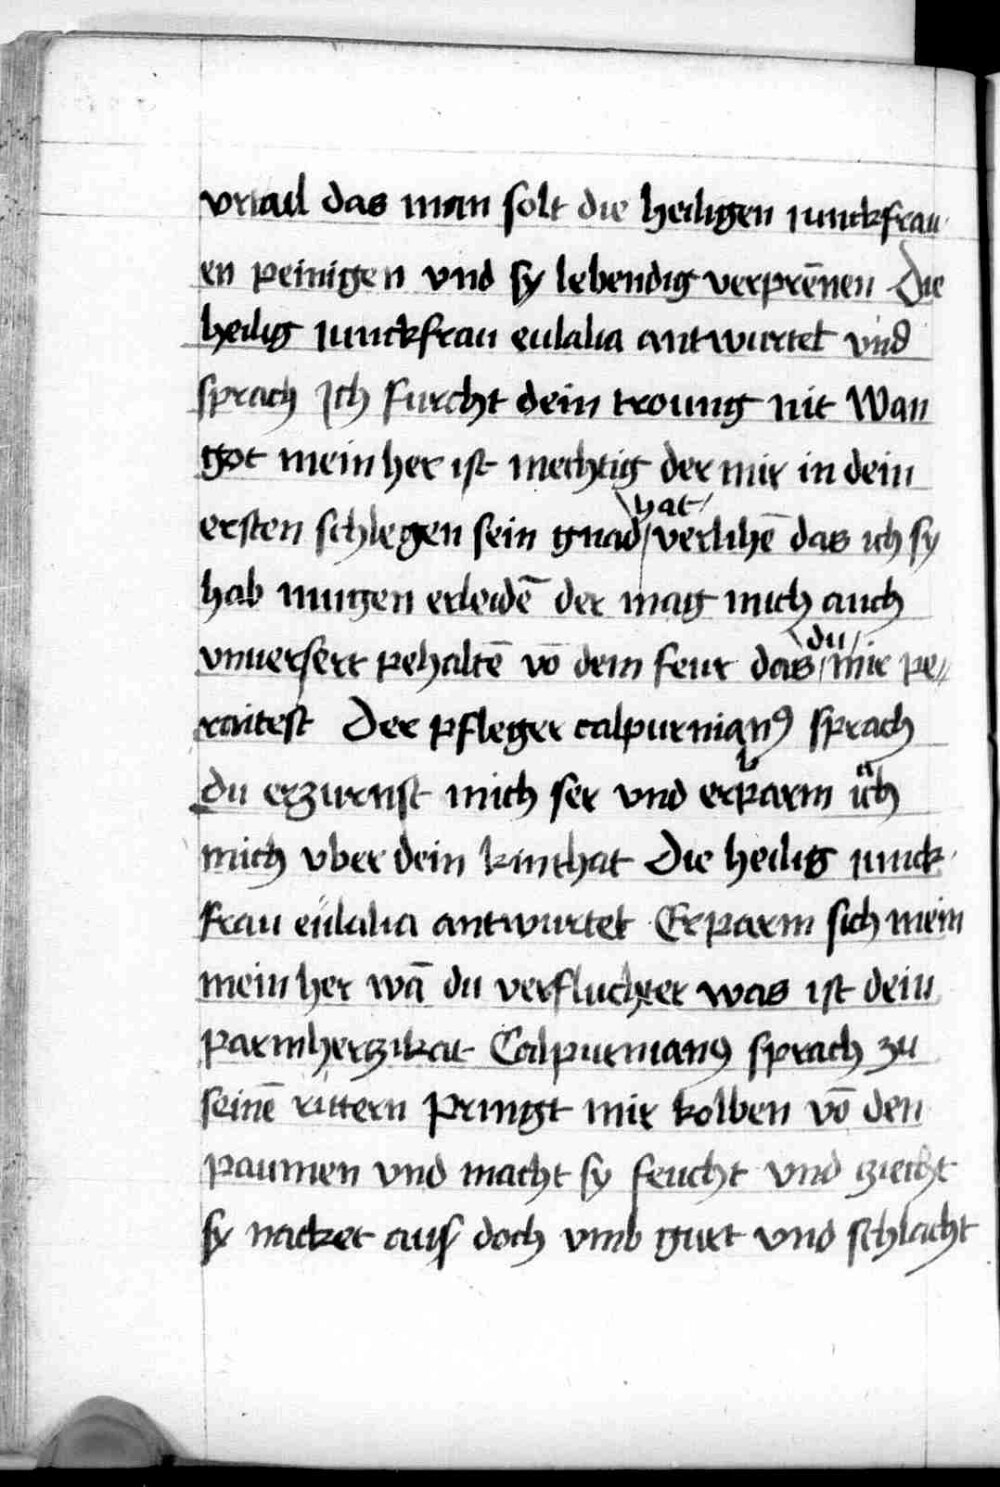 vrtail das man solt die heiligen junckfrau
en peinigen vnd sy lebendig verprēnen Die
heilig junckfrau eulalia antwurtet vnd
sprach Ich furcht dein troung nit Wan
got mein her ist mechtig der mir in dein
ersten schlegen sein gnad \hat/ verlihē das ich sy
hab mugen erleidē der mag mich auch
vnuersert pehaltē vō dem feur das \du/ mir pe
raitest Der pfleger calpurnianꝰ sprach
du erzurnst mich ser vnd erparm ich
mich vber dein kinthat Die heilig junck
frau eülalia antwurtet Erparm sich mein
mein her wā du verfluchter was ist dein
parmherzikait Calpurnianꝰ sprach zu
seinē rittern Pringt mir kolben vō den
paumen vnd macht sy feucht vnd zieiht
sy nacket aus doch vmb gurt vnd schlacht